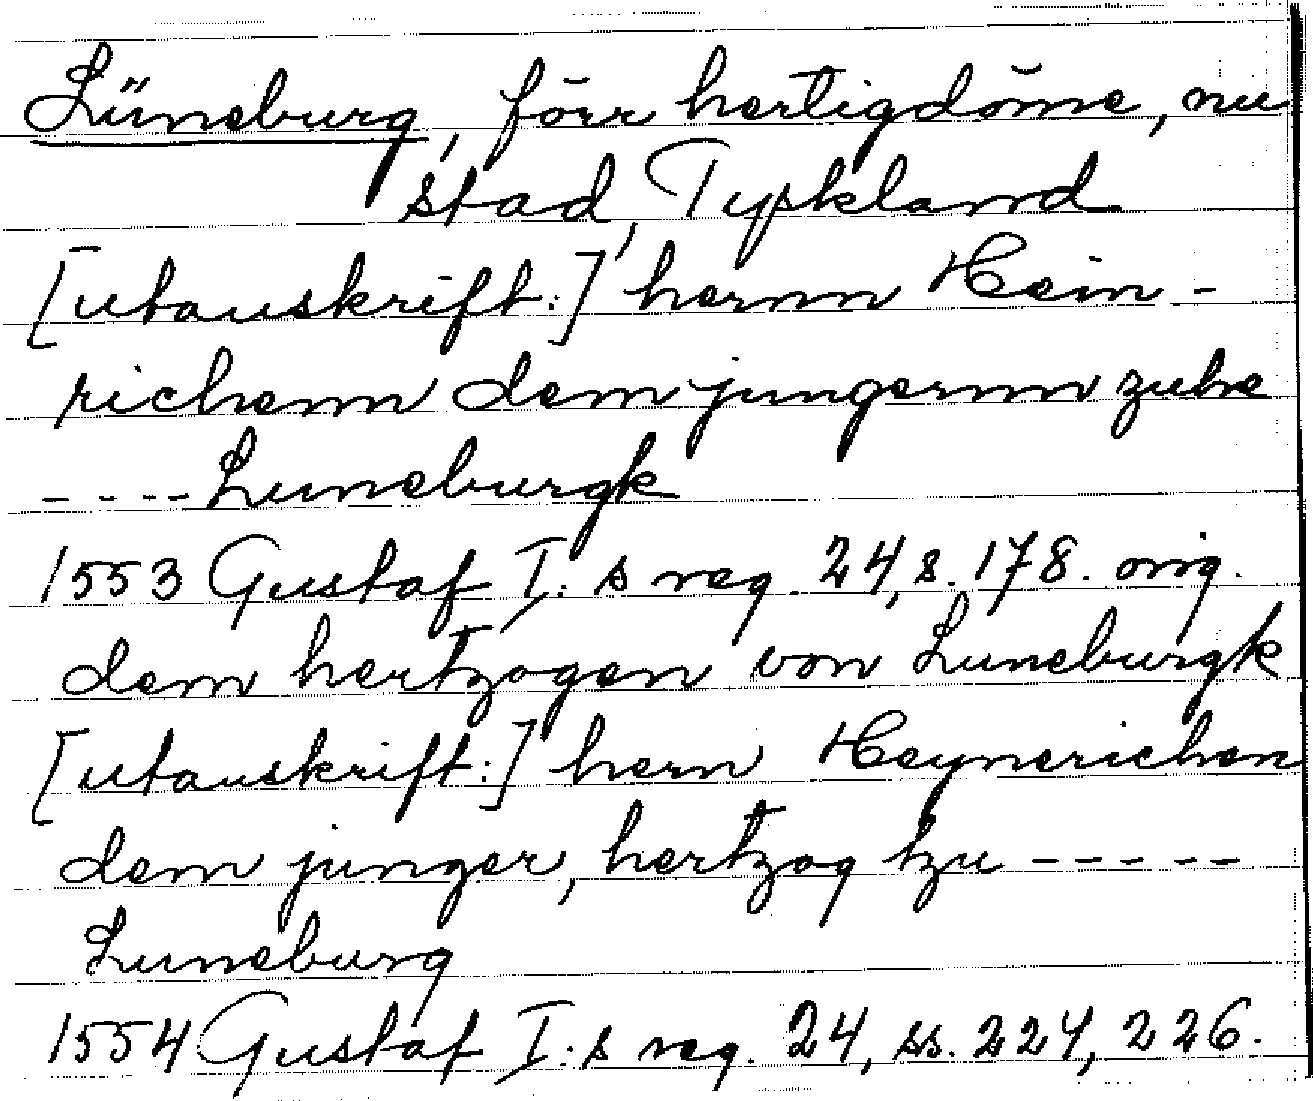 Lüneburg, förr hertigdöme, nu
stad, Tyskland
[utanskrift:] hernn Hein-
richenn dem jungernn zuhe
---- Luneburgk
1553 Gustaf I:s reg. 24, s. 178. orig.
dem hertzogen von Luneburgk
[utanskrift:] hern Heynerichen
dem junger, hertzog tzu -----
Luneburg
1554 Gustaf I:s reg. 24, ss. 224, 226.